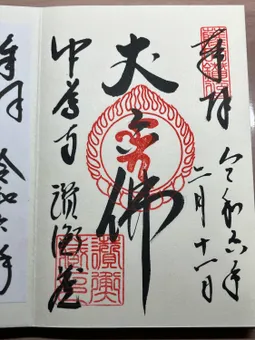 奉拝
令和六年
二月十一日
丈六佛
中尊寺 讃衡蔵
讃衡蔵印
奉拝 令和六年